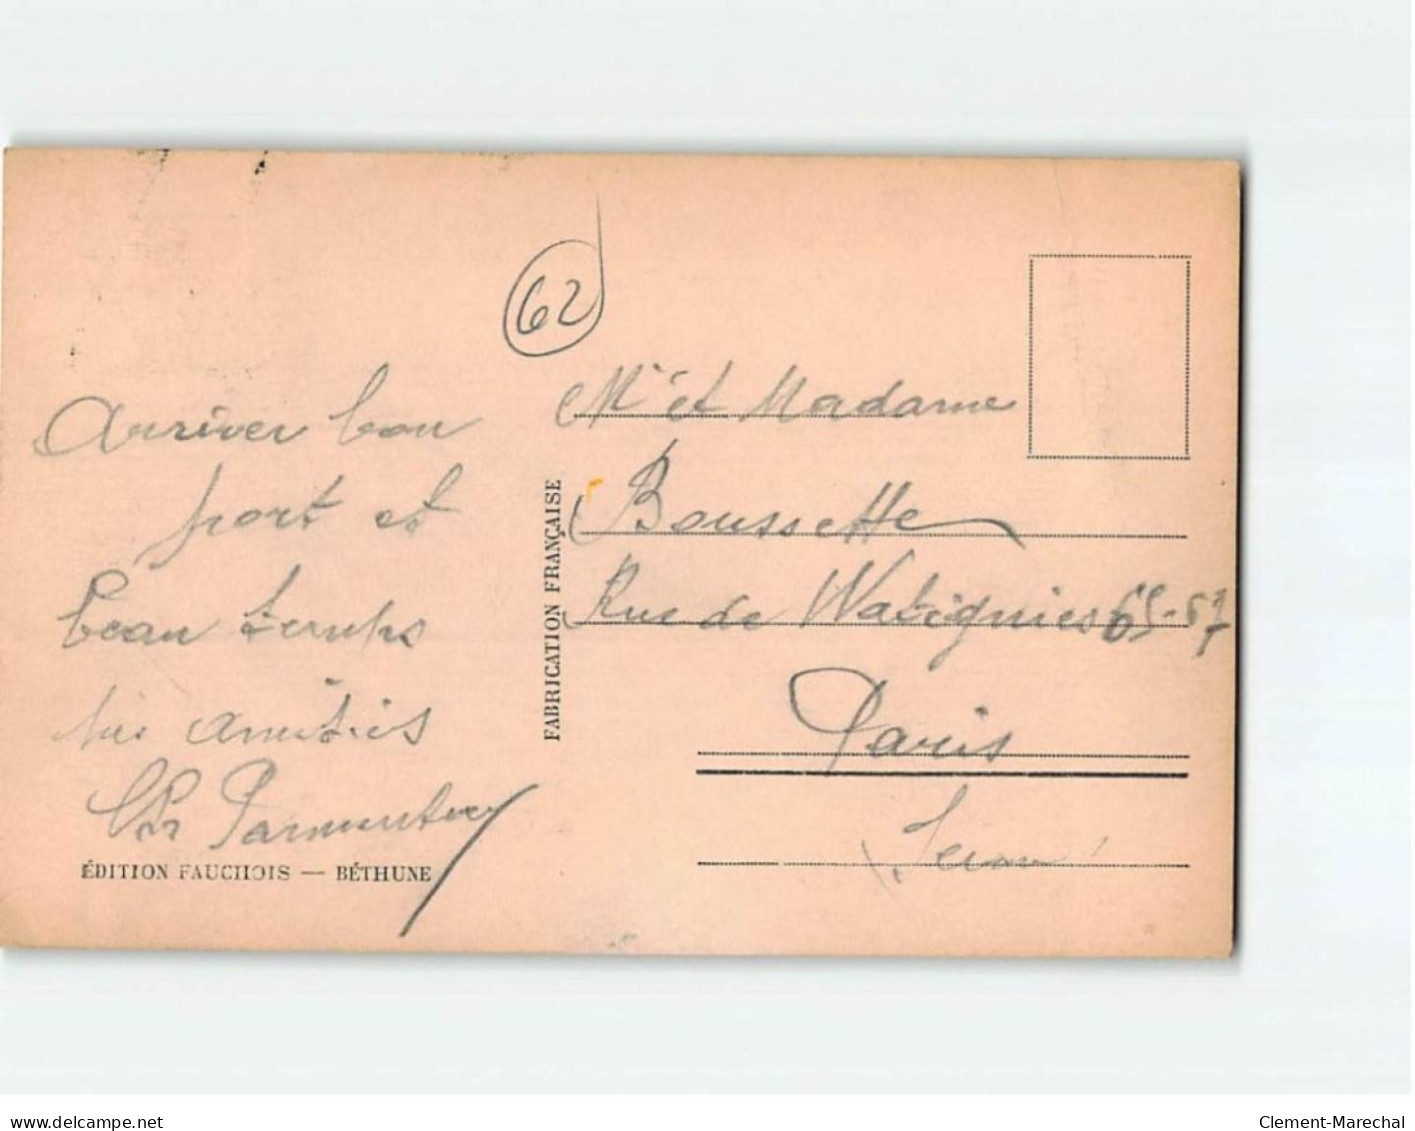 62
Arriver bon
port et
beau temps
amitiés
Ch Parmentier
ÉDITION FAUCHOIS — BÉTHUNE
FABRICATION FRANÇAISE
Mr et Madame
Boussette
Rue de Watignies 65-67
Paris
delcampe.net
Clement-Marechal